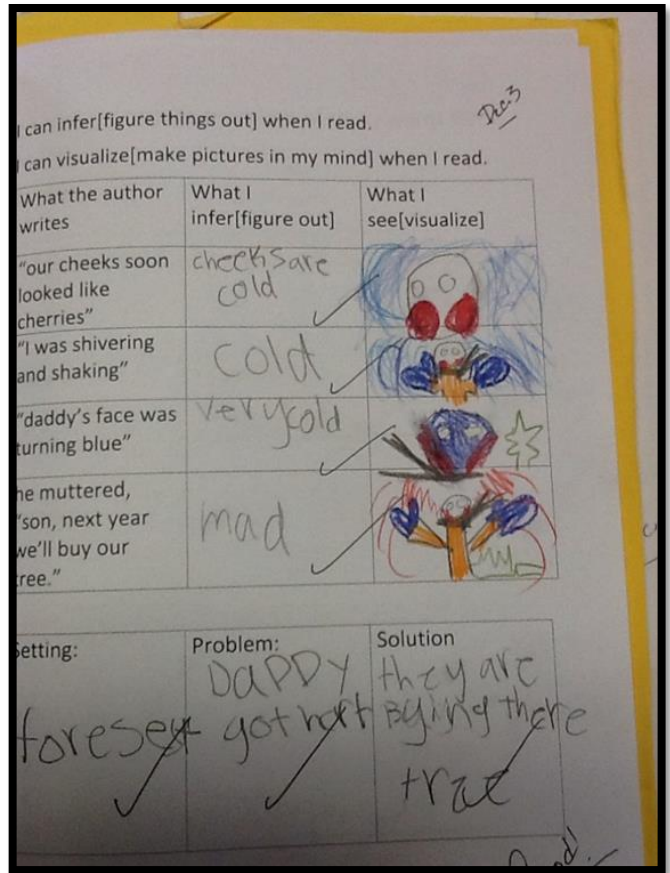 Dec.3
I can infer[figure things out] when I read.
I can visualize[make pictures in my mind] when I read.
What the author
writes
What I
infer[figure out]
What I
see[visualize]
"our cheeks soon
looked like
cherries"
cheeksare
cold
"I was shivering
and shaking"
cold
"daddy's face was
turning blue"
verycold
he muttered,
"son, next year
we'll buy our
tree."
mad
Setting:
foreset
Problem:
DaDDY
got hert
Solution
they are
Bying there
trae